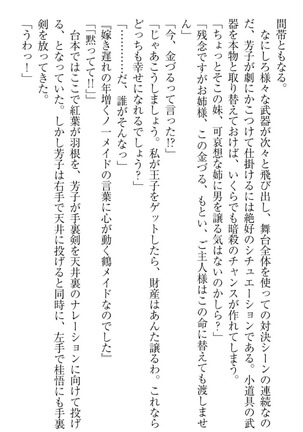 間帯ともなる。
なにしろ様々な武器が次々と飛び出し、舞台全体を使っての対決シーンの連続なの
だ、芳子が劇にかこつけて仕掛けるには絶好のシチュエーションである。小道具の武
器を本物と取り替えておけば、いくらでも暗殺のチャンスが作れてしまう。
「ちょっとそこの妹、可哀想な姉に男を譲る気はないのかしら？」
「残念ですがお姉様、この金づる、もとい、ご主人様はこの命に替えても渡しませ
ん」
「今、金づるって言った!?」
「じゃあこうしましょう。私が王子をゲットしたら、財産はあんた譲るわ。これなら
どっちも幸せになれるでしょう？」
「…………だ、誰がそんなっ」
『嫁き遅れの年増くノ一メイドの言葉に心が動く鶴メイドなのでした』
「黙ってて!!」
台本ではここで紅葉が羽根を、芳子が手裏剣を天井裏のナレーションに向けて投げ
る、となっていた。しかし芳子は右手で天井に投げると同時に、左手で桂悟にも手裏
剣を放ってきた。
「うわっ！」